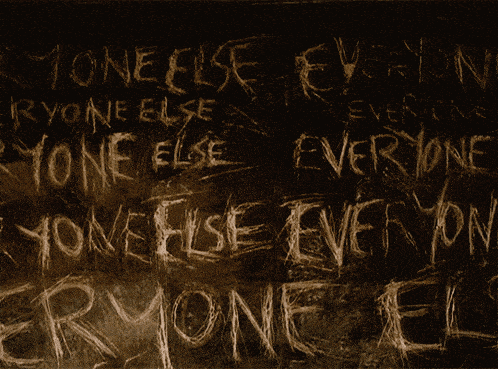 RYONE ELSE EVERYON
RYONE ELSE EVERYONE
RYONE ELSE EVERYONE
RYONE ELSE EVERYON
ERYONE ELS